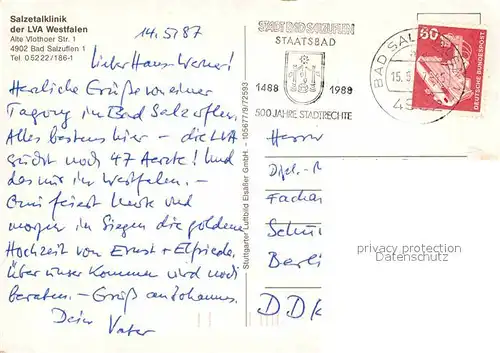 Salzetalklinik
der LVA Westfalen
Alte Vlothoer Str. 1
4902 Bad Salzuflen 1
Tel. 05222/186-1
14.5.87
Lieber Hans-Werner!
Herzliche Grüße von einer
Tagung in Bad Salzuflen.
Alles bestens hier – die LVA
sucht noch 47 Aerzte! Und
das nur in Westfalen. –
Omi feiert heute und
morgen in Siegen die goldene
Hochzeit von Ernst + Elfriede.
Über unser Kommen wird noch
beraten. – Gruß an Johannes.
Dein Vater
Stuttgarter Luftbild Elsäßer GmbH. - 105677/9/72593
STADT BAD SALZUFLEN
STAATSBAD
1488 1988
500 JAHRE STADTRECHTE
BAD SAL
15.5
49
60
DEUTSCHE BUNDESPOST
Herrn
Dipl.-
Fachar
Schul
Berli
DDR
privacy protection
Datenschutz